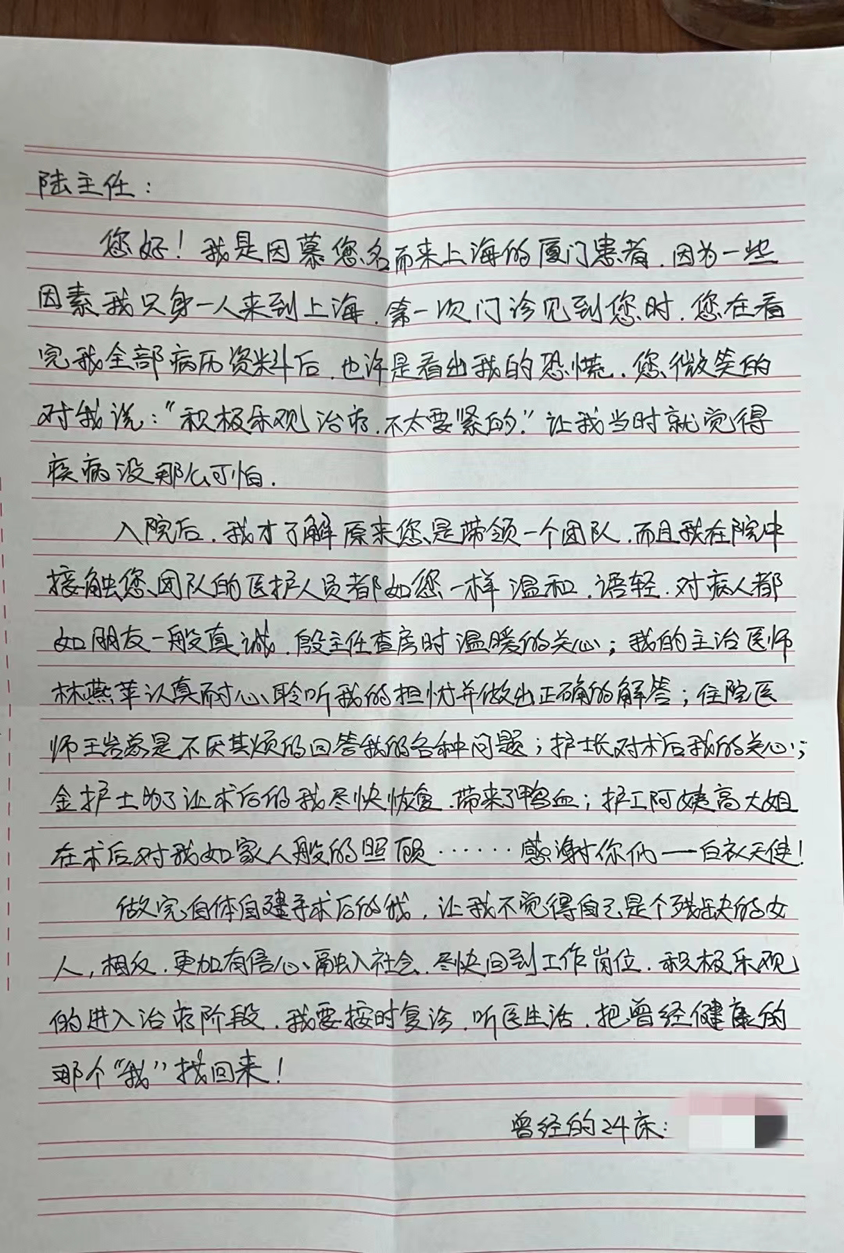 陆主任：
您好！我是因慕您名而来上海的厦门患者，因为一些
因素我只身一人来到上海，第一次门诊见到您时，您在看
完我全部病历资料后，也许是看出我的恐慌，您微笑的
对我说：“积极乐观治疗，不太要紧的。”让我当时就觉得
疾病没那么可怕．
入院后，我才了解原来您是带领一个团队，而且我在院中
接触您团队的医护人员都如您一样温和，语轻，对病人都
如朋友一般真诚，殷主任查房时温暖的关心；我的主治医师
林燕苹认真耐心聆听我的担忧并做出正确的解答；住院医
师王岩总是不厌其烦的回答我的各种问题；护士长对术后我的关心；
金护士为了让术后的我尽快恢复，带来了鸭血；护工阿姨高大姐
在术后对我如家人般的照顾……感谢你们——白衣天使！
做完自体自建手术后的我，让我不觉得自己是个残缺的女
人，相反，更加有信心融入社会，尽快回到工作岗位，积极乐观
的进入治疗阶段，我要按时复诊，听医生话，把曾经健康的
那个“我”找回来！
曾经的24床：